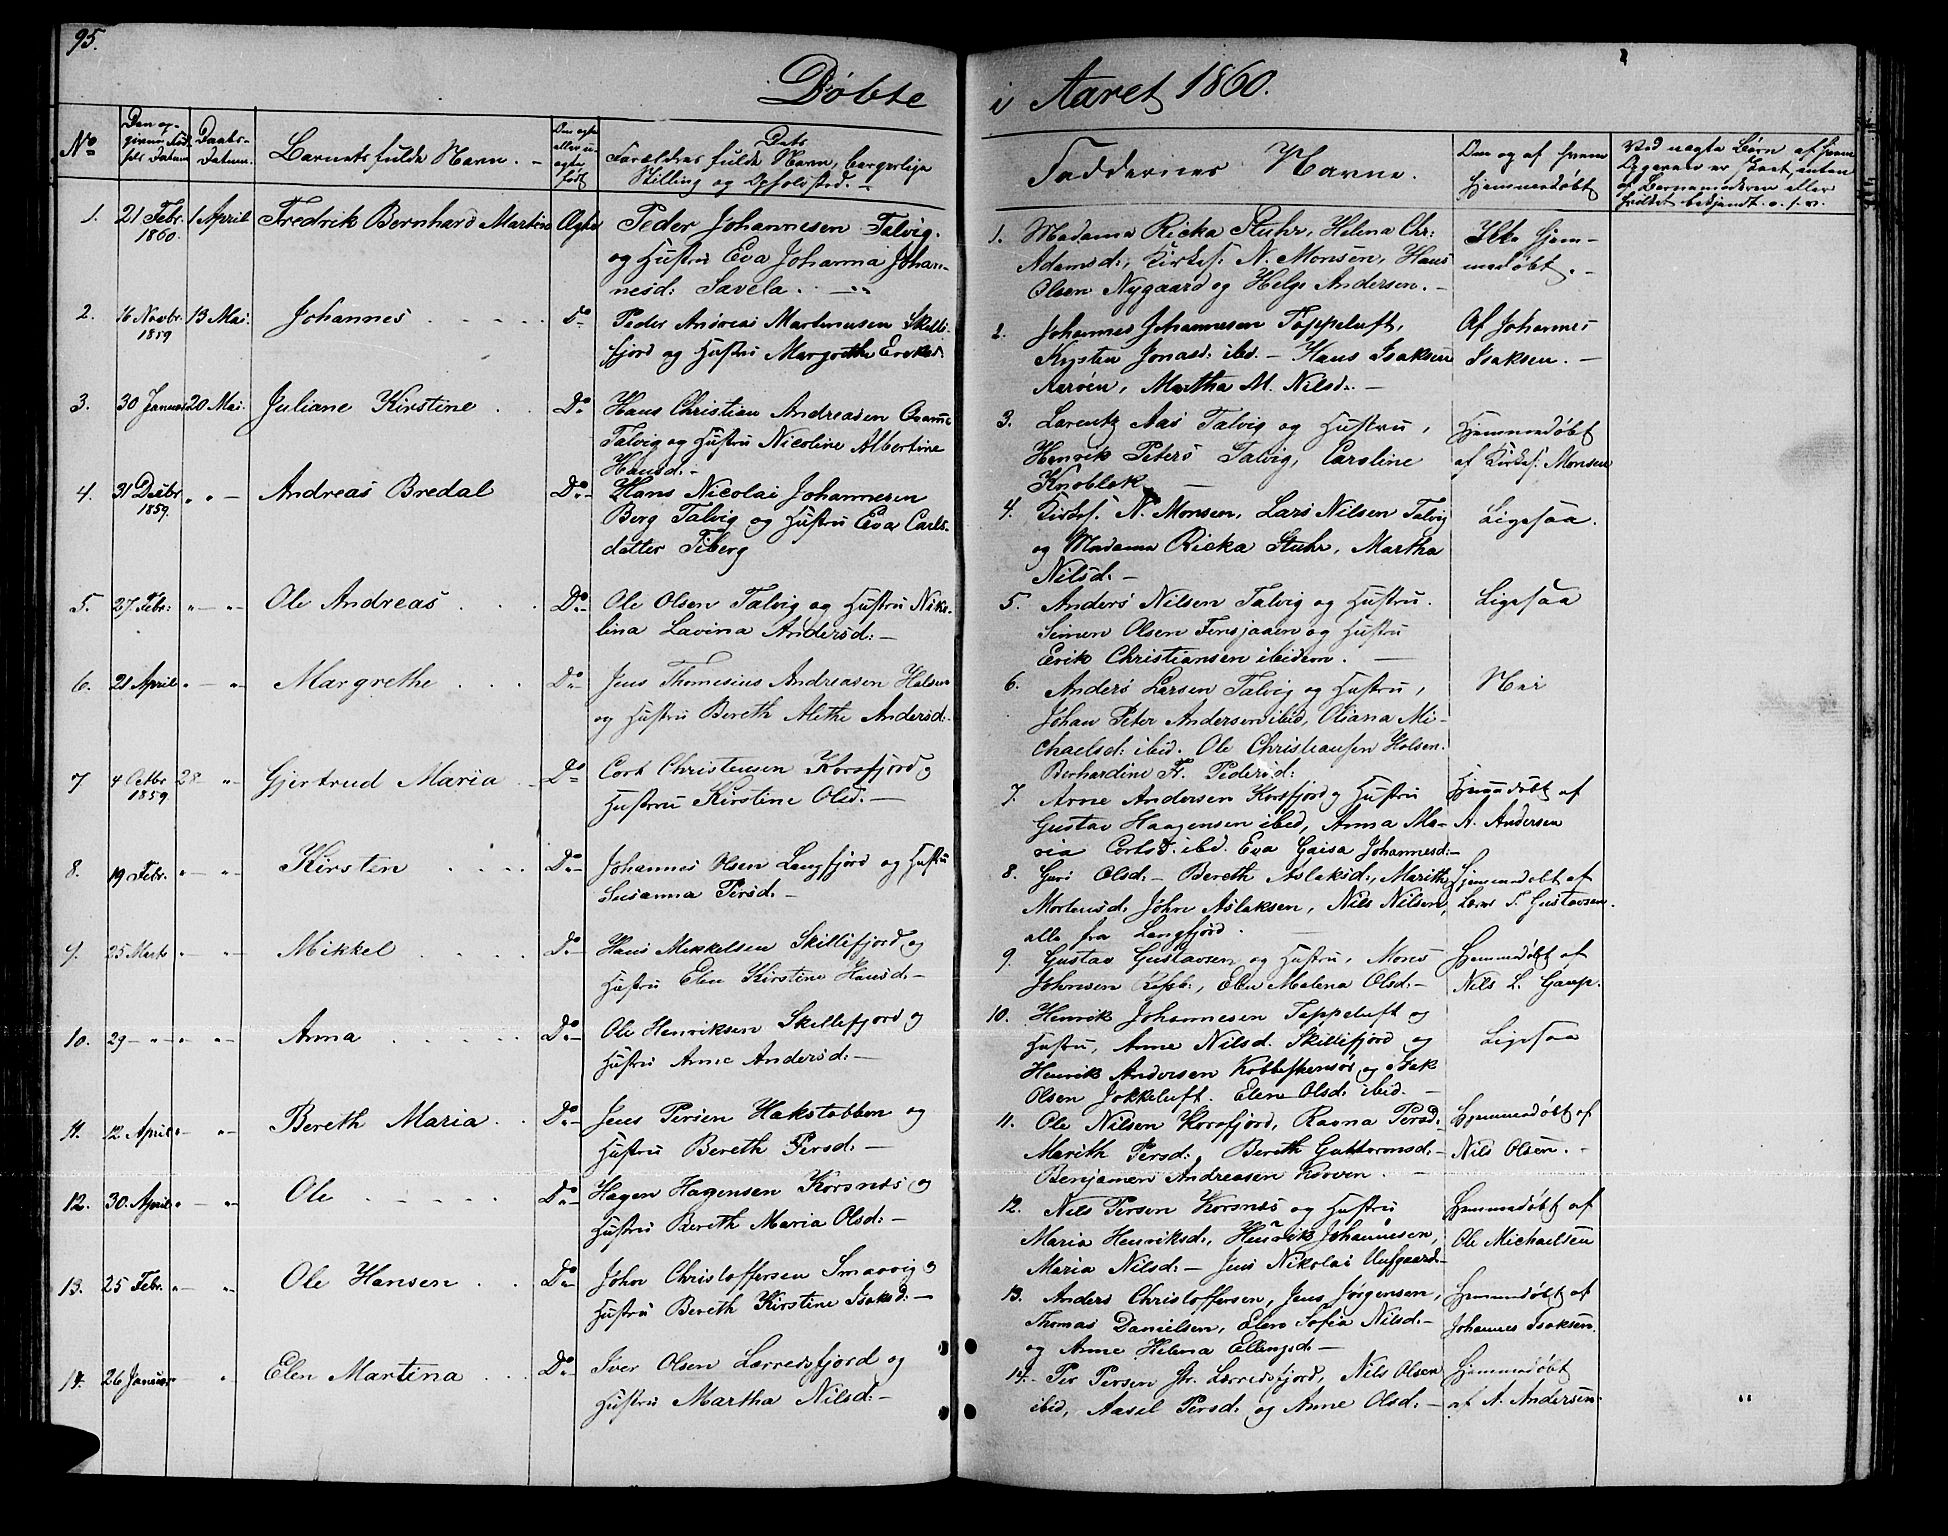 95.
Döbte
No
Den op-
givne Föd-
sels Datum
Daabs-
Datum.
Barnets fulde Navn. -
Om ægte
eller u-
ægte
födt
Dets
Forældres fulde Navn, borgerlige
Stilling og Opholdssted. -
1. 21 Febr. 1 April Fredrik Bernhard Martin Ægte Peder Johannesen Talvig.
1860. og Hustru Eva Johanna Johan-
nesd: Savela.
2. 16 Novbr. 13 Mai. Johannes Do Peder Andreas Martenusen Skille-
1859 fjord og Hustru Margrethe
3. 30 Januar 20 Mai. Juliane Kirstine Do Hans Christian Andreasen
Talvig og Hustru Nicoline Albertine
Hansd. -
4. 31 Decbr. " - " - Andreas Bredal Do Hans Nicolai Johannesen
1859. Berg Talvig og Hustru Eva Carls-
datter Fiberg
5. 27 Febr: " - " - Ole Andreas Do Ole Olsen Talvig og Hustru Niko-
lina Lavina Andersd: -
6. 21 April " - " - Margrethe Do Jens Thomesius Andreasen Holsen
og Hustru Bereth Alethe Andersd:
7 4 Octbr 28 - " - Gjertrud Maria Do Cort Christensen Korsfjord og
1859. Hustru Kirstine Olsd. -
8. 19 Febr. " - " - Kirsten Do Johannes Olsen Langfjord og Hustru
Susanna Persd. -
9. 25 Marts " - " - Mikkel Do Hans Mikkelsen Skillefjord og
Hustru Elen Kirstine Hansd. -
10. 29 - " - " - " - Anna Do Ole Henriksen Skillefjord og
Hustru Anne Andersd: -
11. 12 April " - " - Bereth Maria Do Jens Persen Hakstabben og
Hustru Bereth Persd: -
12. 30 April " - " - Ole Do Hagen Hagensen Korsnæs og
Hustru Bereth Maria Olsd: -
13. 25 Febr. " - " - Ole Hansen Do John Christoffersen Smaavig og
Hustru Bereth Kirstine Isaksd: -
14. 26 Januar " - " Elen Martina Do Iver Olsen Lerredsfjord og
Hustru Martha Nilsd: -
i Aaret 1860.
Faddernes Navne.
Om og af hvem
hjemmedöbt
Ved uægte Börn af hvem
Opgaven er skeet, enten
af Barnemoderen eller
hvildet bekjendt. o. s. v.
1. Madame Ricka Stuhr, Helena Chr: Ikke hjem-
Adamsd:, Kirkes. N. Monsen, Hans medöbt. -
Olsen Nygaard og Helge Andersen. -
2. Johannes Johannesen Toppeluft, Af Johannes
Kirsten Jonasd. ibid - Hans Isaksen Isaksen. -
Aaröen, Martha M. Nilsd. -
3. Lorentz Aas Talvig og Hustru, Hjemmedöbt
Henrik Peters Talvig, Caroline af Kirkes. Monsen
Knoblok -
4. Kirkes. N. Monsen, Lars Nilsen Talvig Ligesaa.
og Madame Ricka Stuhr, Martha
Nilsd. -
5. Anders Nilsen Talvig og Hustru. Ligesaa
Simon Olsen og Hustru
Erik Christiansen ibidem. -
6. Anders Larsen Talvig og Hustru, Nei
Johan Peter Andersen ibid, Oliana Mi-
chaelsd: ibid. Ole Christiansen Holsen.
Berhardine Fr. Pedersd:
7. Arne Andersen Korsfjord og Hustru Hjemmedöbt af
Gustav Haagensen ibid, Anna Ma- A. Andersen
ria Cortsd. ibid. Eva Gaisa Johannesd: -
8. Guri Olsd: - Bereth Aslaksd:, Marith Hjemmedöbt af
Mortensd: John Aslaksen, Nils Nilsen, Lars T. Gustavsen.
alle fra Langfjord. -
9. Gustav Gustavsen og Hustru, Mons Hjemmedöbt af
Johnsen Repb:, Elen Malena Olsd: - Nils L. Gaup.
10. Henrik Johannesen Toppeluft og Ligesaa
Hustru, Anne Nilsd. Skillefjord og
Henrik Andersen og Isak
Olsen Jokkeluft. Elen Olsd: ibid. -
11. Ole Nilsen Korsfjord, Ravna Persd. Hjemmedöbt af
Marith Persd:, Bereth Guttormsd: - Nils Olsen. -
Benjamin Andreasen
12. Nils Persen Korsnæs og Hustru Hjemmedöbt af
Maria Henriksd:, Henrik Johannesen, Ole Michaelsen
Maria Nilsd: - Jens Nikolai Uufgaard -
13. Anders Christoffersen, Jens Jörgensen, Hjemmedöbt af
Thomas Danielsen, Elen Sofia Nilsd: - Johannes Isaksen.
og Anne Helena Ellingsd: -
14. Per Persen St. Lerredsfjord, Nils Olsen Hjemmedöbt
ibid, Aasel Persd: og Anne Olsd: - af A. Andersen. "